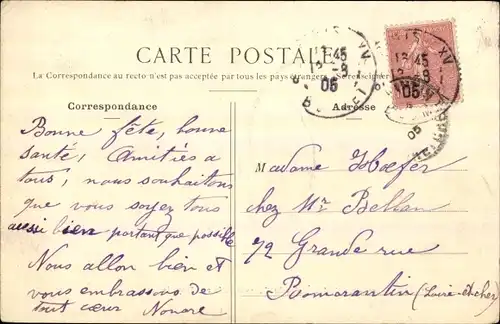 CARTE POSTALE
La Correspondance au recto n'est pas acceptée par tous les pays étrangers
Correspondance
Bonne fête, bonne
santé, Amitiés a
tous, nous souhaitons
que vous soyez tous
aussi bien portant que possible
Nous allon bien et
vous embrassons de
tout cœur
Adresse
Madame Hoefer
chez Mr Bellan
72 Grande rue
Romorantin (Loire-et-cher)
XV
45
05
XV
45
05
05